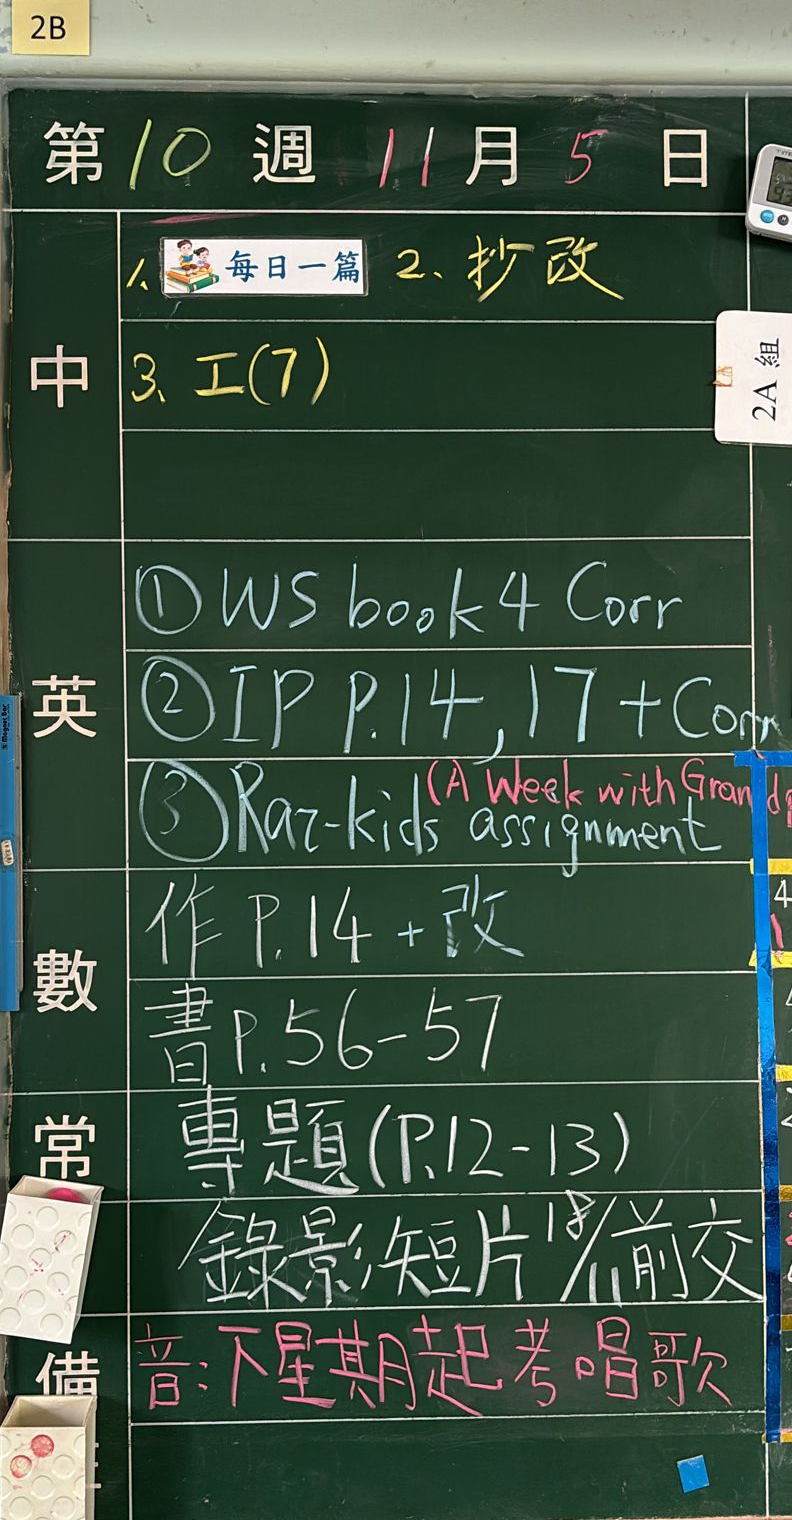 2B
第 10 週 11 月 5 日
中
1. 每日一篇 2、抄改
3、工(7)
2A 組
英
① WS book 4 Corr
② IP P.14, 17 + Corr
(A Week with Grand
③ Raz-kids assignment
數
作 P.14 + 改
書 P.56-57
常
專題(P.12-13)
錄影短片 18/11前交
備
音:下星期起考唱歌